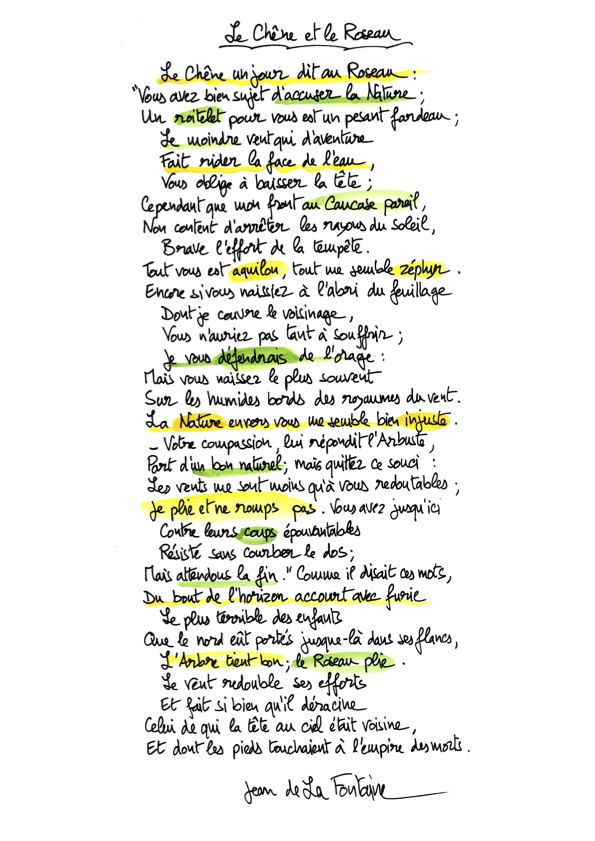 Le Chêne et le Roseau
Le Chêne un jour dit au Roseau :
"Vous avez bien sujet d'accuser la Nature ;
Un roitelet pour vous est un pesant fardeau ;
Le moindre vent qui d'aventure
Fait rider la face de l'eau,
Vous oblige à baisser la tête ;
Cependant que mon front au Caucase pareil,
Non content d'arrêter les rayons du soleil,
Brave l'effort de la tempête.
Tout vous est aquilon, tout me semble zéphyr.
Encore si vous naissiez à l'abri du feuillage
Dont je couvre le voisinage,
Vous n'auriez pas tant à souffrir ;
Je vous défendrais de l'orage :
Mais vous naissez le plus souvent
Sur les humides bords des royaumes du vent.
La Nature envers vous me semble bien injuste.
- Votre compassion, lui répondit l'Arbuste,
Part d'un bon naturel ; mais quittez ce souci :
Les vents me sont moins qu'à vous redoutables ;
Je plie et ne romps pas. Vous avez jusqu'ici
Contre leurs coups épouvantables
Résisté sans courber le dos ;
Mais attendons la fin." Comme il disait ces mots,
Du bout de l'horizon accourt avec furie
Le plus terrible des enfants
Que le nord eût portés jusque-là dans ses flancs,
L'Arbre tient bon ; le Roseau plie.
Le vent redouble ses efforts
Et fait si bien qu'il déracine
Celui de qui la tête au ciel était voisine,
Et dont les pieds touchaient à l'empire des morts.
Jean de La Fontaine